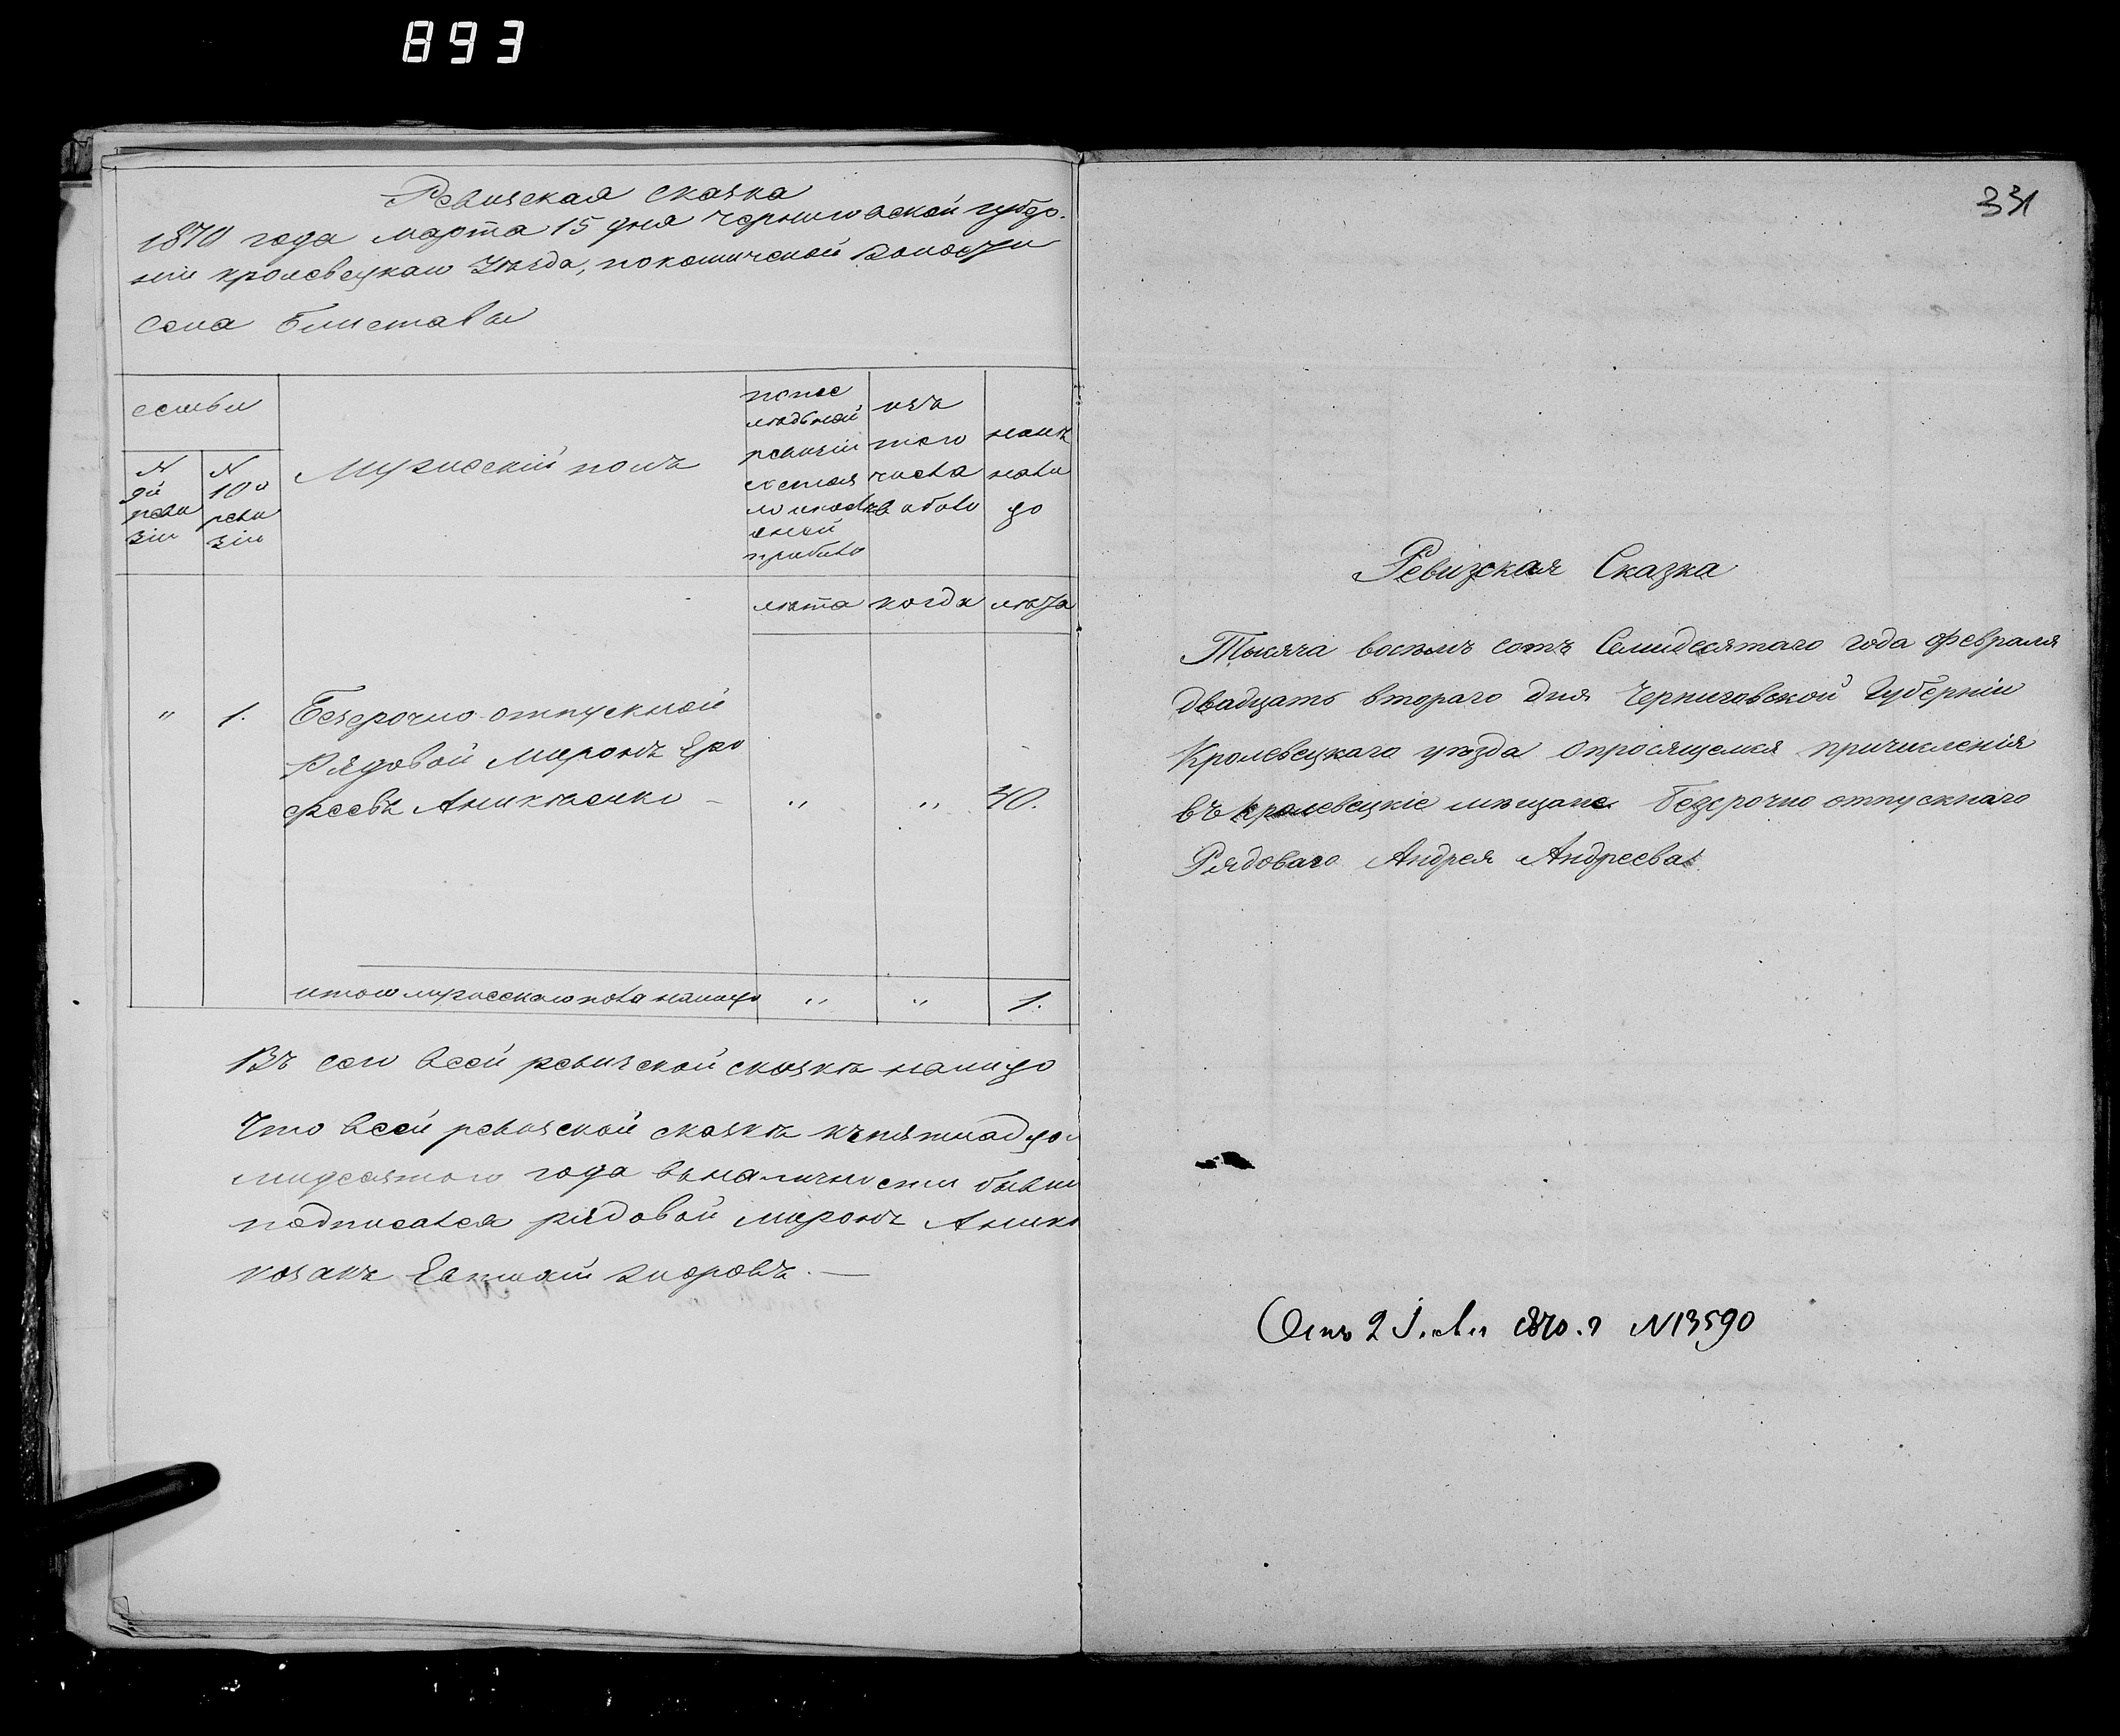 893
Ревизская сказка
1870 года марта 15 дня Черниговской губер.
ніи кролевецкаго Уѣзда, покошичской волости
Села Билетавы
семьи
Мужескій полъ
№ 9й ревизіи
№ 10й ревизіи
после людьной ревизіи
изъ того числа
нынѣ на лицо
лѣта
когда
лѣта
" 1. Безсрочно-отпускной
Рядовой Миронъ Еро
феевъ Аникѣенко – " " 40.
итого мужескаго пола налицо " " 1.
Въ сего всей ревизской сказкѣ налицо
Что всей ревизской сказкѣ къ пятнадца
мидесятого года въ наличности бывш
подписался рядовой Миронъ Аник
козакъ
331
Ревизская Сказка
Тысяча восемь сотъ Семидесятаго года февраля
двадцать втораго дня Черниговской Губерніи
Кролевецкаго уѣзда Опросящемся причисленія
въ кролевецкіе мѣщане безсрочно отпускнаго
Рядоваго Андрея Андреева
Отъ 2 1870.г № 13590